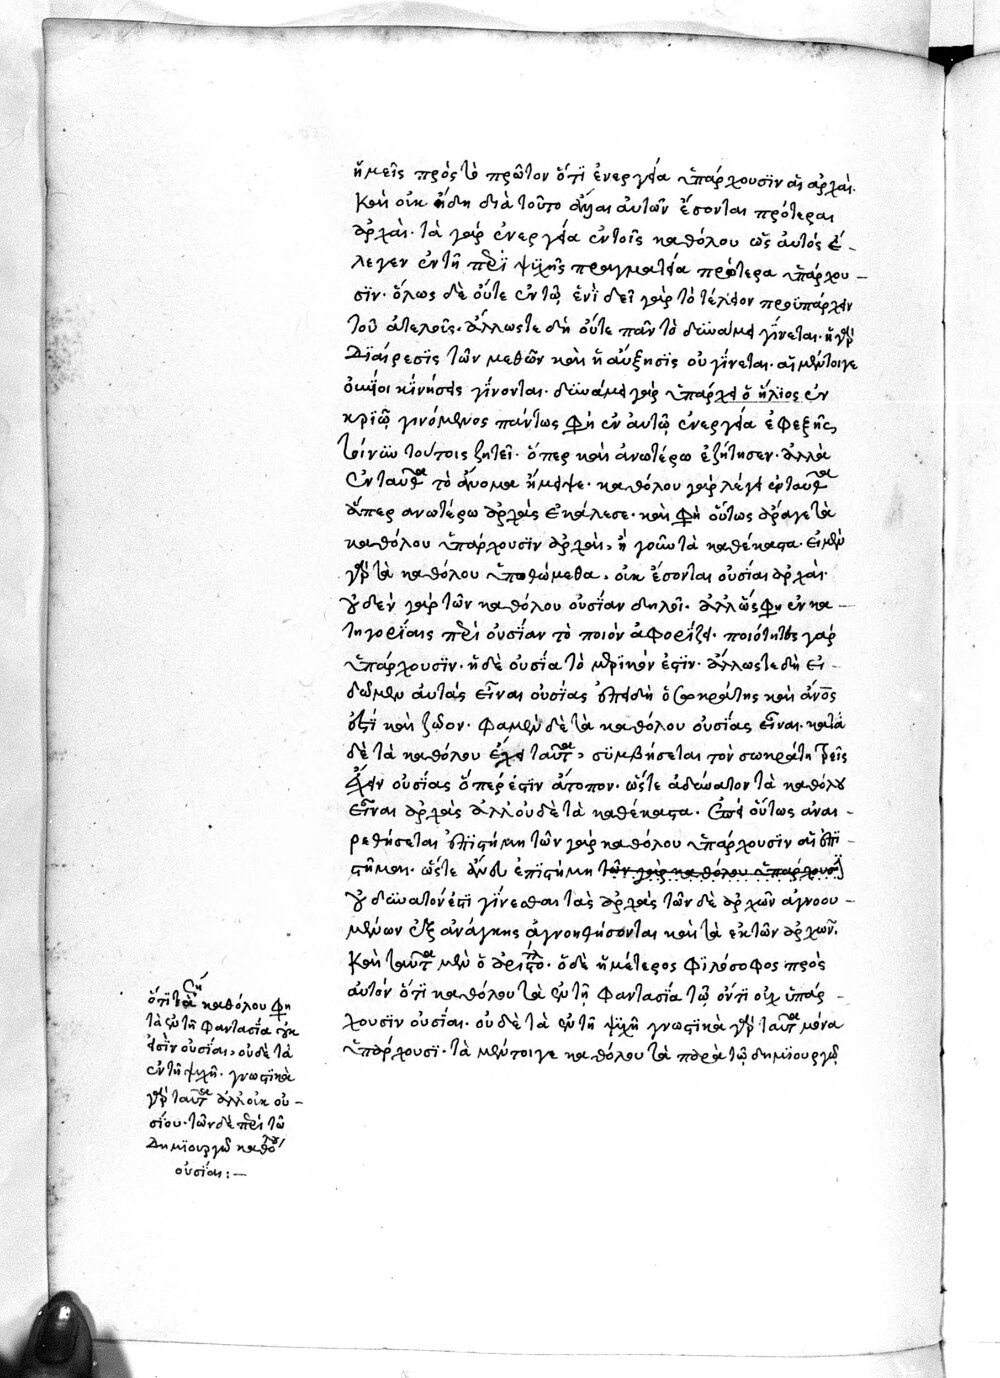 ἡμεῖς πρὸς τὸ πρῶτον ὅτι ἐνεργεία ὑπάρχουσϊν αἱ ἀρχαὶ.
καὶ οὐκ ἤδη διὰ τοῦτο ἄλλαι αὐτῶν ἔσονται πρότεραι
ἀρχαὶ. τὰ γὰρ ἐνεργεία ἐν τοῖς καθόλου ὡς αὐτός ἔ-
λεγεν ἐν τῇ περὶ ψυχῆς πραγματεία πρότερα ὑπάρχου-
σϊν. ὅλως δὲ οὔτε ἐν τῷ ἑνὶ δεῖ γὰρ τὸ τέλειον προϋπάρχειν
τοῦ ἀτελοῦς. ἄλλωστε δὴ οὔτε πᾶν τὸ δυνάμει γίνεται. ἡ γὰρ
διαίρεσϊς τῶν μεθῶν καὶ ἡ αὔξησϊς οὐ γίνεται. αἱ μέντοιγε
κινήσεις γίνονται. δυνάμει γὰρ ὑπάρχει ὁ ἥλιος ἐν
κριῷ γινόμενος πάντως φησὶ ἐν αὐτῷ ἐνεργεία ἐφεξῆς,
τοίνυν τούτοις ζητεῖ. ὅπερ καὶ ἀνωτέρω ἐζήτησεν. ἀλλὰ
ἐνταῦθα τὸ ὄνομα ἤμειψε. καθόλου γὰρ λέγει ἐνταῦθα
ἅπερ ἀνωτέρω ἀρχὰς ἐκάλεσε. καὶ φησὶ οὕτως ἆράγε τὰ
καθόλου ὑπάρχουσϊν ἀρχαὶ, ἢ γοῦν τὰ καθέκαστα. εἰ μὲν
γὰρ τὰ καθόλου ὑποθώμεθα, οὐκ ἔσονται οὐσίαι ἀρχαὶ.
οὐδὲν γὰρ τῶν καθόλου οὐσίαν δηλοῖ. ἀλλ' ὥς φησι ἐν κα-
τηγορίαις περὶ οὐσίαν τὸ ποιὸν ἀφορίζει. ποιότητες γὰρ
ὑπάρχουσϊν. ἡ δὲ οὐσία τὸ μερικόν ἐστϊν. ἄλλωστε δὴ εἰ-
δῶμεν αὐτὰς εἶναι οὐσίας ἐπειδὴ ὁ σωκράτης καὶ ἄνος
ἐστὶ καὶ ζῶον. φαμὲν δὲ τὰ καθόλου οὐσίας εἶναι. κατὰ
δὲ τὰ καθόλου ταῦτα, συμβήσεται τὸν σωκράτη τρεῖς
ἔχειν οὐσίας ὅπέρ ἐστϊν ἄτοπον. ὥστε ἀδύνατον τὰ καθόλου
εἶναι ἀρχὰς ἀλλ' οὐδὲ τὰ καθέκαστα. ἐπεὶ οὕτως ἀναι-
ρεθήσεται ἐπιστήμη τῶν γὰρ καθόλου ὑπάρχουσϊν αἱ ἐπι-
στῆμαι. ὥστε ἄνευ ἐπιστήμη τῶν γὰρ καθόλου ὑπάρχουσϊ
οὐ δυνατόν ἐστι γίνεσθαι τὰς ἀρχὰς τῶν δὲ ἀρχῶν ἀγνοου-
μένων ἐξ ἀνάγκης ἀγνοηθήσονται καὶ τὰ ἐκ τῶν ἀρχῶν.
καὶ ταῦτα μὲν ὁ ἀριστο. ὁ δὲ ἡμέτερος φιλόσοφος πρὸς
αὐτὸν ὅτϊ καθόλου τὰ ἐν τῇ φαντασία τῷ ὄντι οὐχ ὑπάρ-
χουσϊν οὐσίαι. οὐδὲ τὰ ἐν τῇ ψυχῇ γνωστϊκὰ γὰρ ταῦτα μόνα
ὑπάρχουσϊ. τὰ μέντοιγε καθόλου τὰ παρὰ τῷ δημϊουργῷ
ση
ὅτι τὰ καθόλου φησὶ
τὰ ἐν τῇ φαντασία οὐκ
εἰσϊν οὐσίαι, οὐδὲ τὰ
ἐν τῇ ψυχῇ. γνωστϊκὰ
γὰρ ταῦτα ἀλλ' οὐκ οὐ-
σίαι. τῶν δὲ περὶ τῶ
δημϊουργῶ καθό
οὐσίαι:-